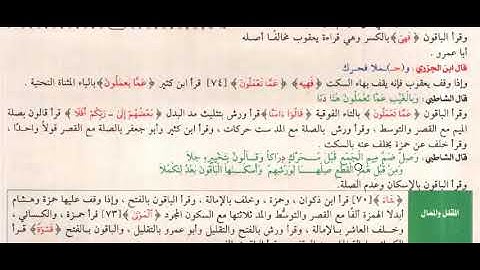 وقرأ الباقون ﴿فَهِيَ﴾ بالكسر وهي قراءة يعقوب مخالفًا أصله
أبا عمرو .
قال ابن الجزري : و(حـ)ـملا فحرك
وإذا وقف يعقوب فإنه يقف بهاء السكت ﴿فَهِيه﴾ ﴿عَمَّا تَعْمَلُونَ﴾ [٧٤] قرأ ابن كثير . ﴿عَمَّا يَعْمَلُونَ﴾ بالياء المثناة التحتية .
قال الشاطبي : وَبِالْغَيْبِ عَمَّا تَعْمَلُونَ هُنَا دَنَا
وقرأ الباقون ﴿عَمَّا تَعْمَلُونَ﴾ بالتاء الفوقية ﴿قَالُوا ءَامَنَّا﴾ وقرأ ورش بتثليث مد البدل ﴿بَعْضُهُمْ إِلَى - رَبِّكُمْ أَفَلَا﴾ قرأ قالون بصلة
الميم مع القصر والتوسط ، وقرأ ورش بالصلة مع المد ست حركات ، وقرأ ابن كثير وأبو جعفر بالصلة مع القصر قولاً واحدًا ،
وقرأ خلف عن حمزة بخلفه عنه بالسكت .
قال الشاطبي : وَصِلْ ضَمَّ مِيمِ الْجَمْعِ قَبْلَ مُحَرَّكٍ دِرَاكًا وَقَالُونٌ بِتَخْيِيرِهِ جَلَا
وَمِنْ قَبْلِ هَمْزِ الْقَطْعِ صِلْهَا لِوَرْشِهِمْ وَأَسْكَنَهَا الْبَاقُونَ بَعْدُ لِتَكْمُلَا
وقرأ الباقون بالإسكان وعدم الصلة.
المقلل والممال
﴿شَاءَ﴾ [٧٠] قرأ ابن ذكوان ، وحمزة ، وخلف بالإمالة ، وقرأ الباقون بالفتح ، وإذا وقف عليها حمزة وهشام
أبدلا الهمزة ألفًا مع القصر والتوسُّط والمد ثلاثتها مع السكون المجرد ﴿الْمَوْتَى﴾ [٧٣] قرأ حمزة ، والكسائي ،
وخلف العاشر بالإمالة ، وقرأ ورش بالفتح والتقليل وأبو عمرو بالتقليل ، والباقون بالفتح ﴿قَسْوَةً﴾